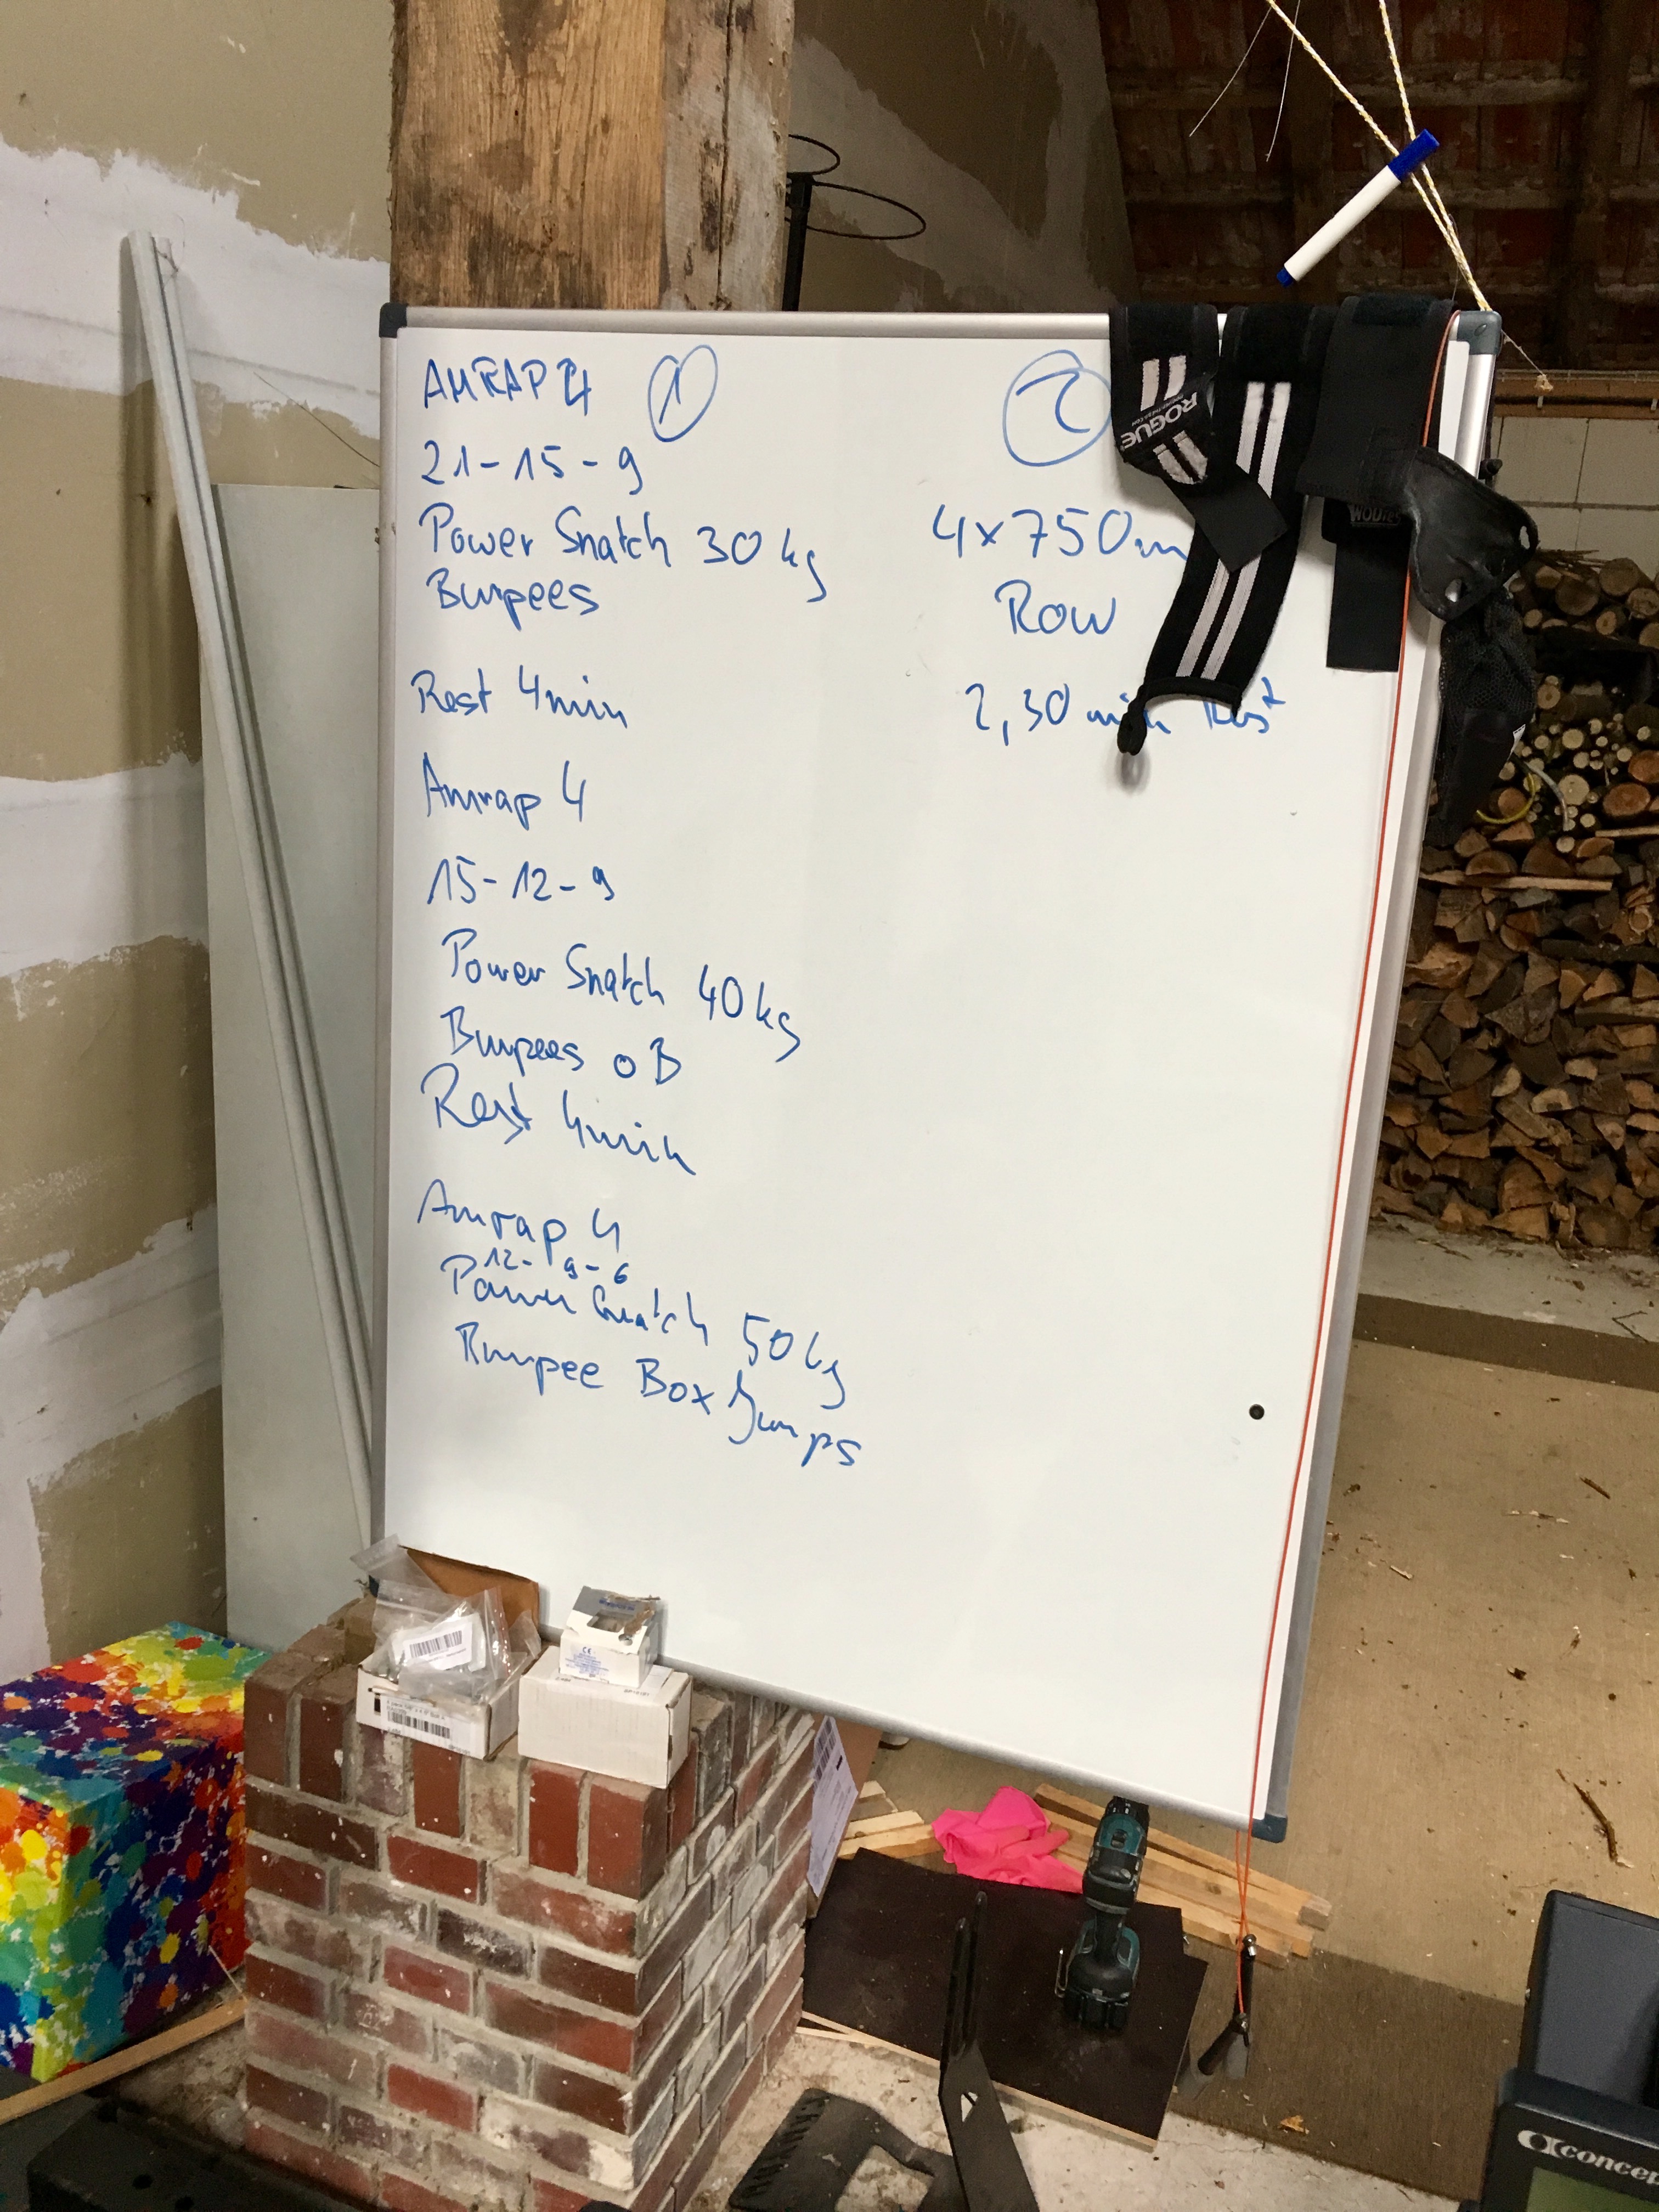 AMRAP 4 1
21-15-9
Power Snatch 30 kg
Burpees
Rest 4min
Amrap 4
15-12-9
Power Snatch 40kg
Burpees oB
Rest 4min
Amrap 4
12-9-6
Power Snatch 50kg
Burpee Box Jumps
2
4x750m
Row
2,30 min Rest
ROGUE
concep